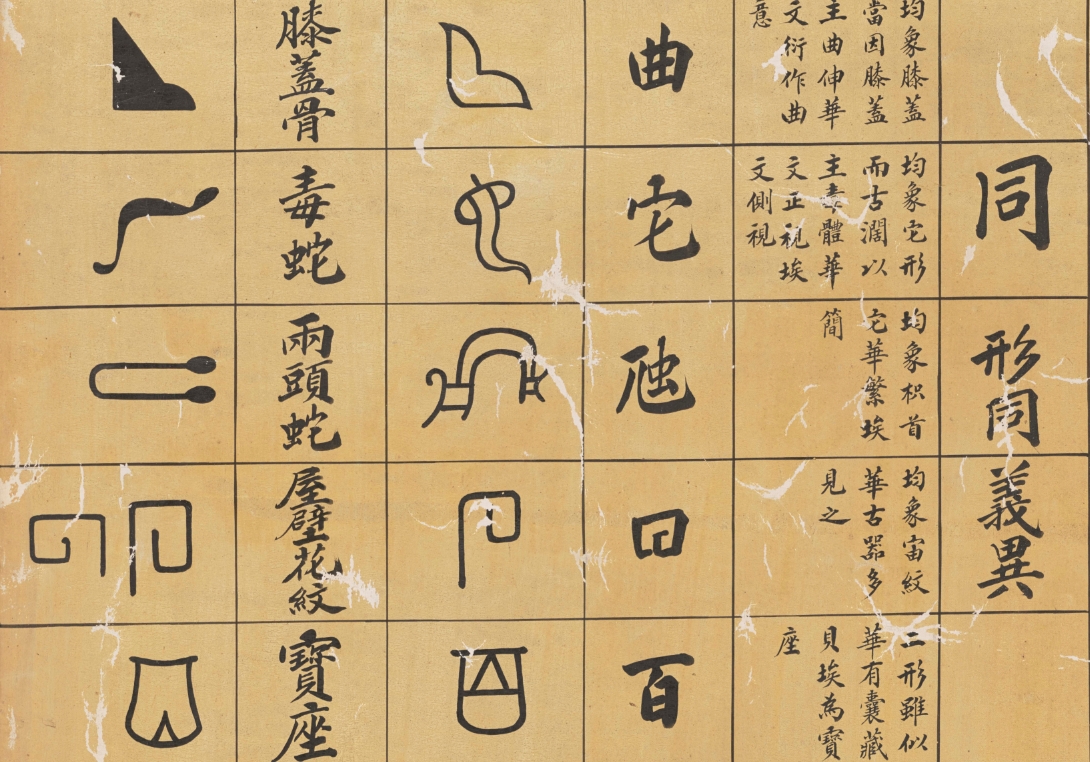 同形同義異
均象膝蓋
當因膝蓋
主曲伸華
文衍作曲
意
曲
膝蓋骨
均象它形
而古濶以
主毒體華
文正視埃
文側視
它
毒蛇
均象枳首
它華繁埃
簡
兩頭蛇
均象紋
華古器多
見之
屋壁花紋
二形雖似
華有囊藏
貝埃為寶
座
百
寶座